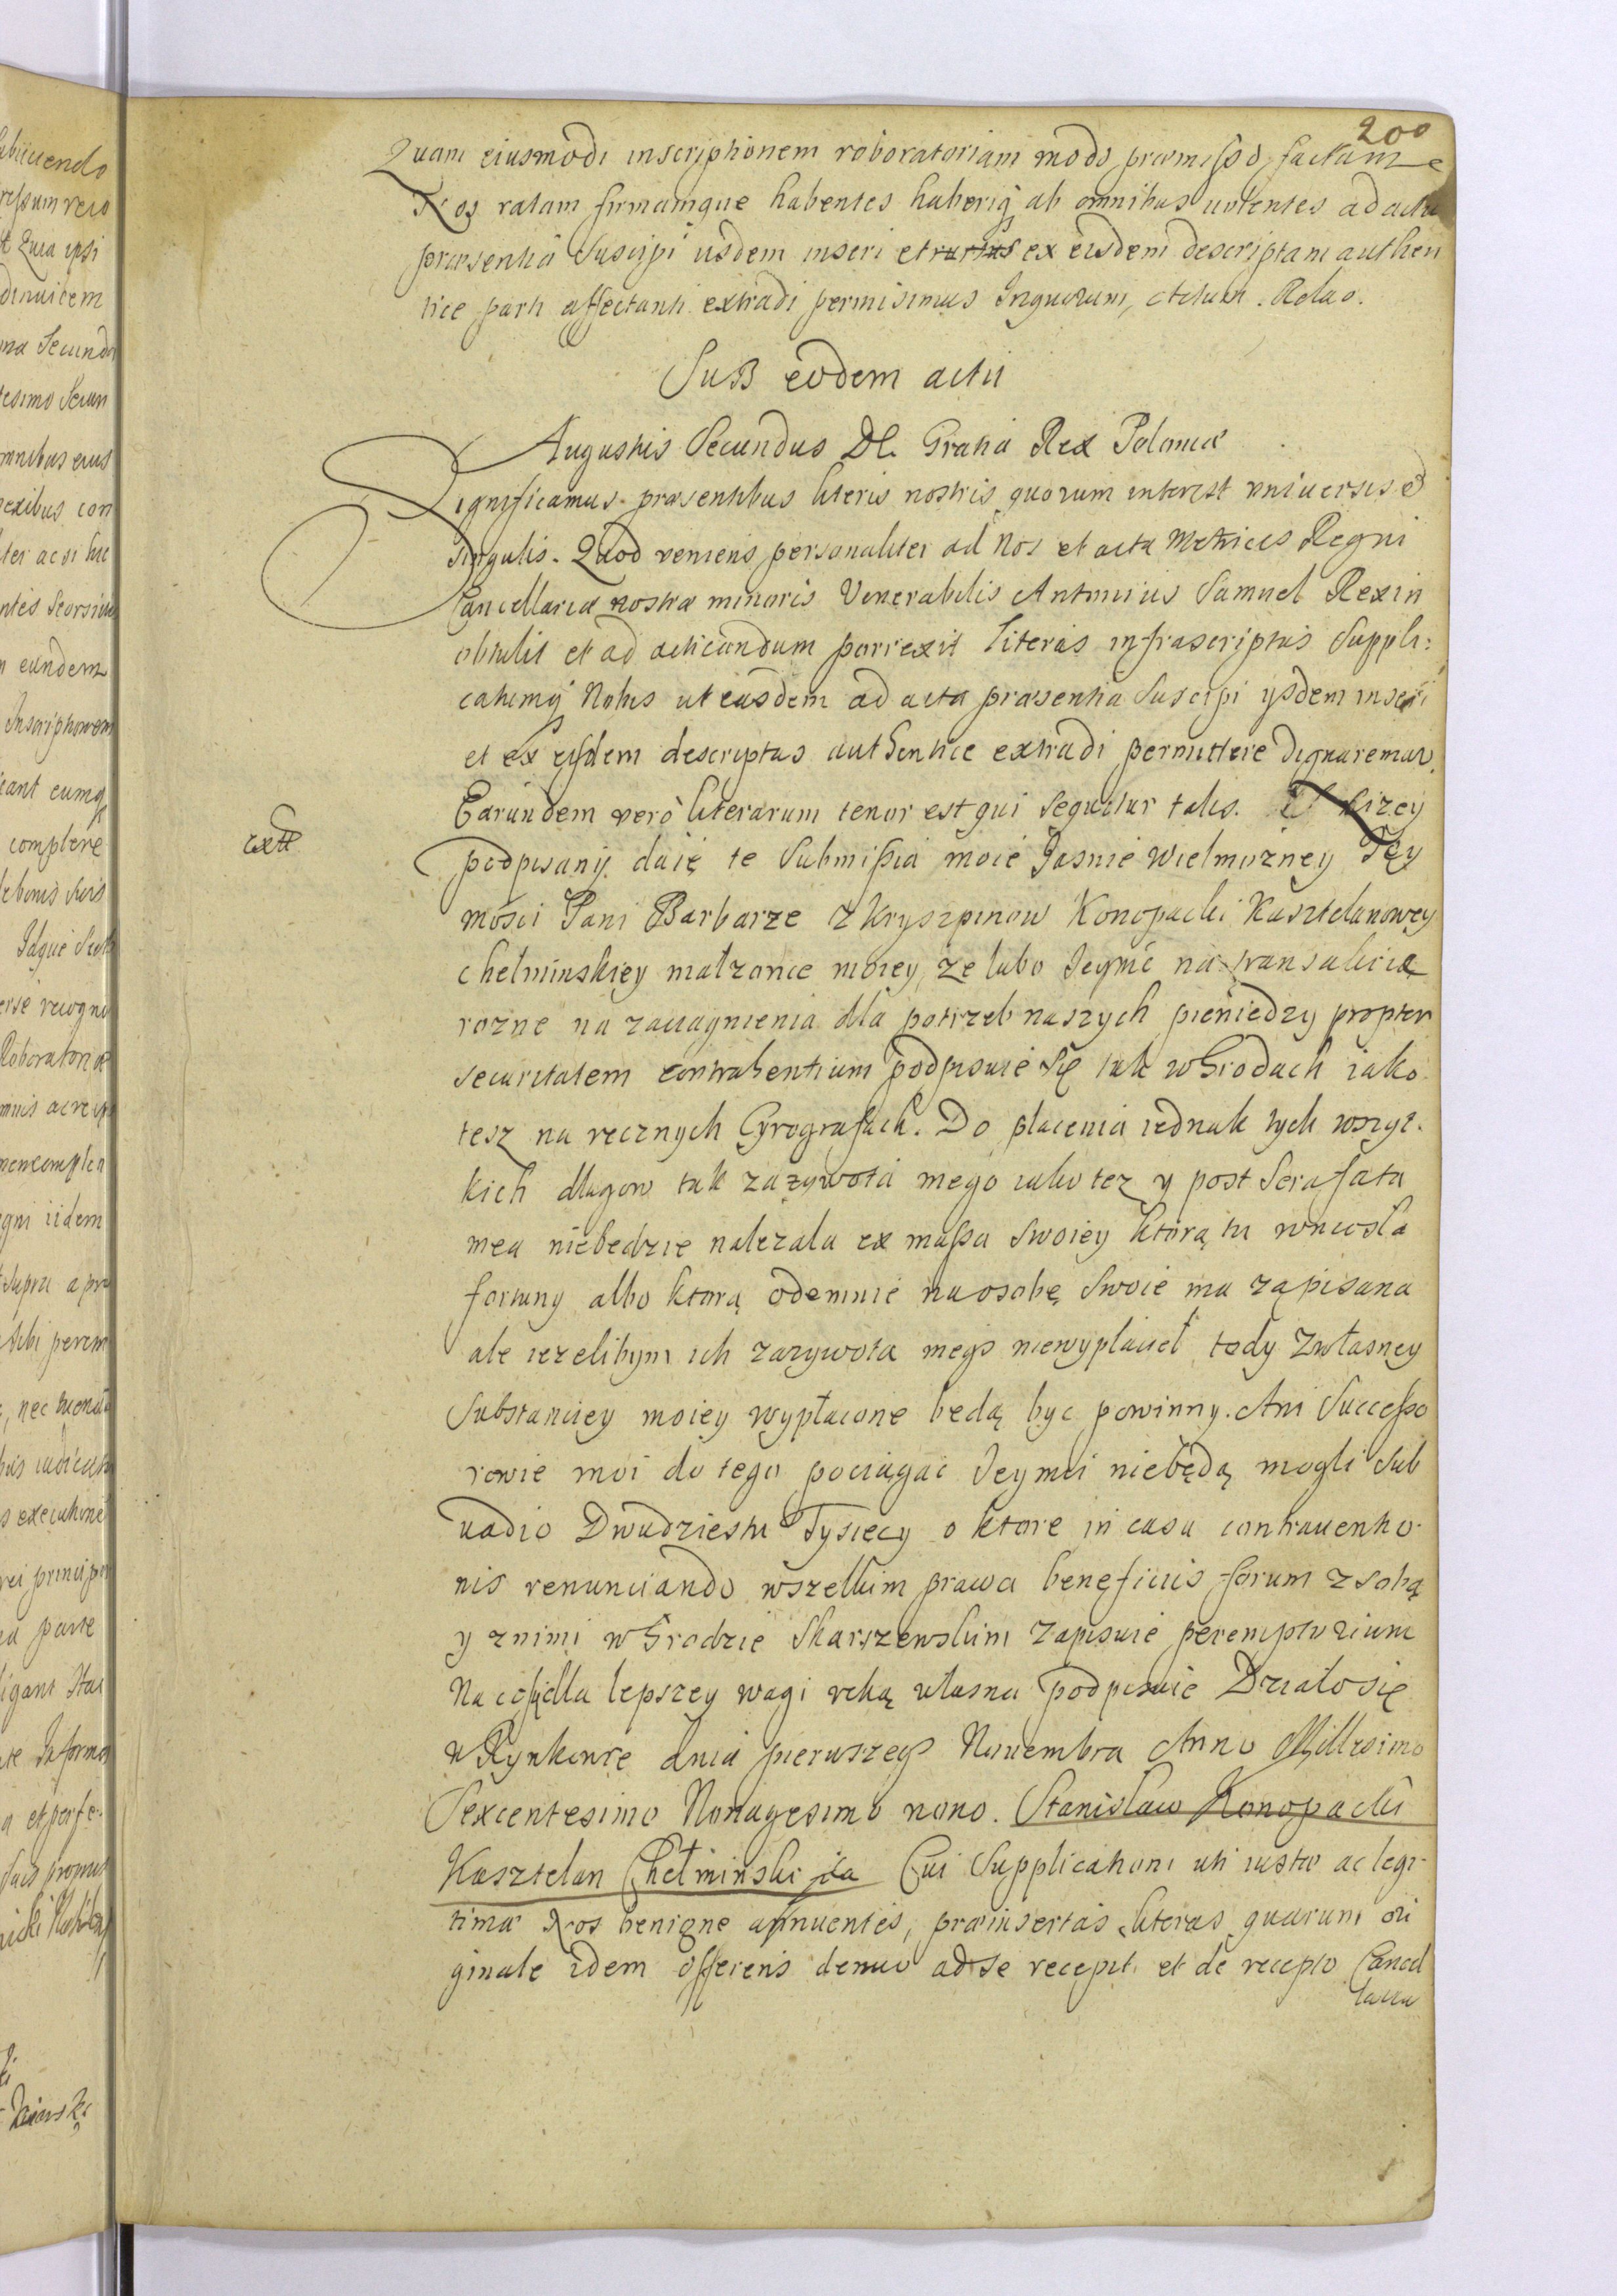 200
Quam eiusmodi inscriptionem roboratoriam modo præmisso factam
Nos ratam firmamque habentes haberiq ab omnibus volentes ad acta
præsentia suscipi iisdem inseri et rursus ex eisdem descriptam authen
tice parti affectanti extradi permisimus Inquorum, Actum. Relao.
Sub eodem actu
Augustus Secundus D. Gratia Rex Poloniæ
Significamus præsentibus literis nostris quorum interest universis et
singulis. Quod veniens personaliter ad Nos et acta Metrices Regni
Cancellariæ nostræ minoris Venerabilis Antonius Samuel Rexin
obtulit et ad acticandum porrexit literas infrascriptas Suppli:
catumq Nobis ut easdem ad acta præsentia suscipi ysdem inseri
et ex eysdem descriptas authentice extradi permittere dignaremur.
Earundem verò literarum tenor est qui sequitur talis. Niżey
podpisany daię te Submissią moie Jasnie Wielmożney Jey
mości Pani Barbarze z Kryszpinow Konopacki Kasztelanowey
chełminskiey małzonce moiey, ze lubo Jeymć na transakcie
rozne na zaciagnienia dla potrzeb naszych pieniedzy propter
securitatem contrahentium podpisuie się tak w Grodach iako
tesz na recznych Cyrografach. Do płacenia iednak tych wszyt.
kich dlugow tak zazywota mego iako tez y post sera fata
mea niebedzie nalezała ex massa swoiey ktorą tu wniosła
fortuny albo ktorą odemnie na osobę swoie ma zapisana
ale iezelibym ich zazywota mego niewypłacieł tedy zwłasney
Substanciey moiey wypłacone będą byc powinny. Ani Successo
rowie moi do tego pociągac Jeymci niebędą mogli sub
vadio Dwudziestu Tysięcy o ktore in casu contraventio-
nis renunciando wszelkim prawa beneficiis forum z sobą
y z nimi w Grodzie Skarszewskim zapisuie peremptorium
Na co się dla lepszey wagi ręką własną podpisuie Działo się
w Rynkowce dnia pierwszego Novembra Anno Millesimo
Sexcentesimo Nonagesimo nono. Stanisław Konopacki
Kasztelan Chełminski Cui Supplicationi uti iustæ ac legi-
timæ Nos benigne annuentes, præinsertas literas quarum ori
ginale idem offerens denuo ad se recepit et de recepto Cancel
laria